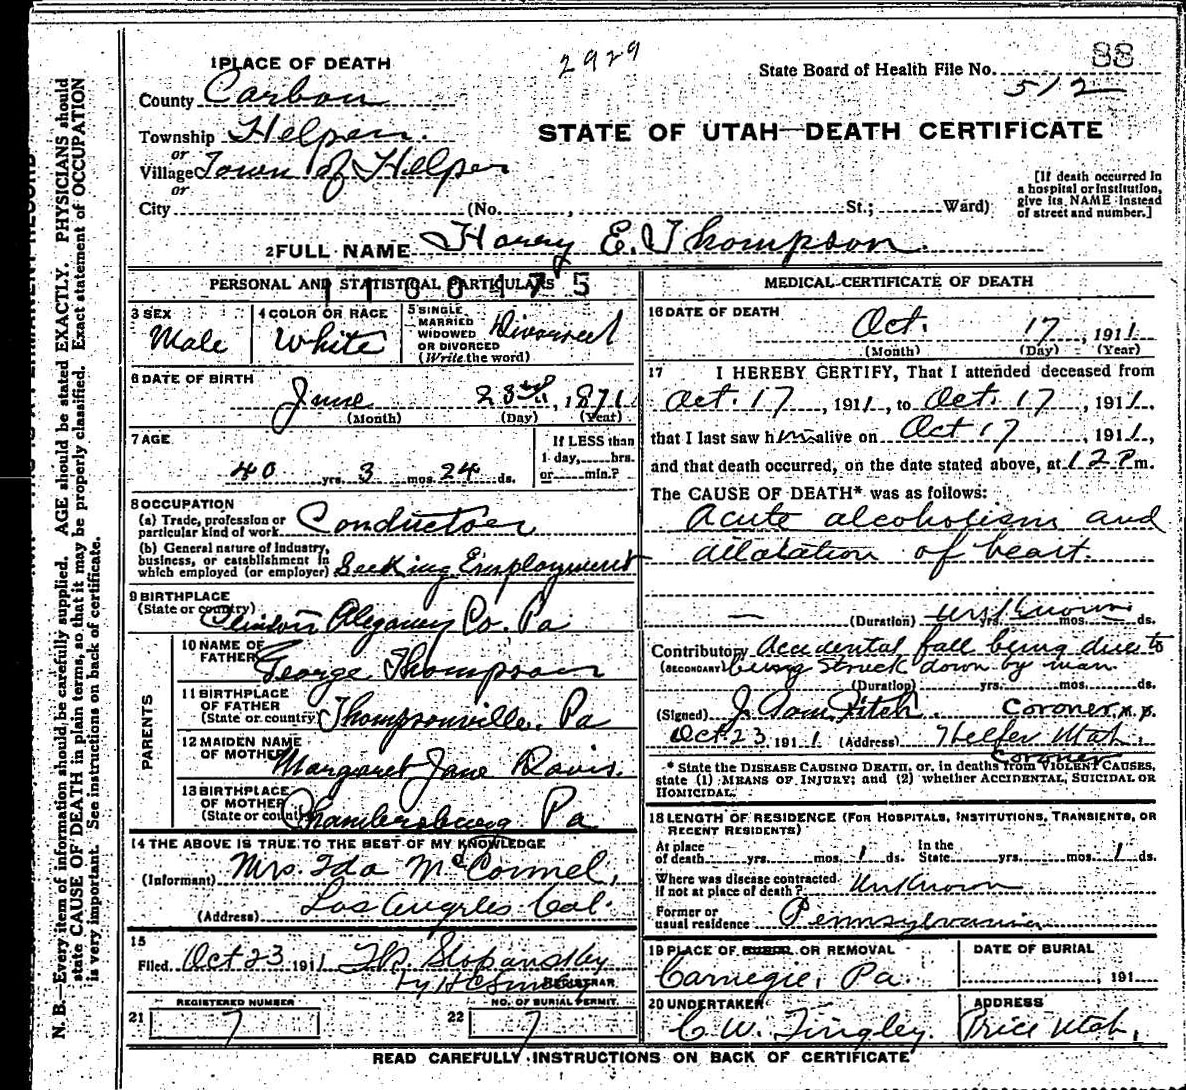 2929
88
State Board of Health File No. 512
1 PLACE OF DEATH
County Carbon
Township Helper.
or
Village Town of Helper
or
City (No. , St.; Ward)
STATE OF UTAH—DEATH CERTIFICATE
[If death occurred in
a hospital or institution,
give its NAME instead
of street and number.]
2 FULL NAME Harry E. Thompson.
PERSONAL AND STATISTICAL PARTICULARS
1100475
3 SEX
Male
4 COLOR OR RACE
White
5 SINGLE
MARRIED
WIDOWED
OR DIVORCED
(Write the word)
Divorced
6 DATE OF BIRTH
June 23rd, 1871
(Month) (Day) (Year)
7 AGE
40 yrs. 3 mos. 24 ds.
If LESS than
1 day, hrs.
or min.?
8 OCCUPATION
(a) Trade, profession or
particular kind of work Conductoer
(b) General nature of Industry,
business, or establishment in
which employed (or employer) Seeking Employment
9 BIRTHPLACE
(State or country)
Clinton Alegany Co. Pa
PARENTS
10 NAME OF
FATHER
George Thompson
11 BIRTHPLACE
OF FATHER
(State or country) Thompsonville. Pa
12 MAIDEN NAME
OF MOTHER
Margaret Jane Davis.
13 BIRTHPLACE
OF MOTHER
(State or country) Chambersburg. Pa
14 THE ABOVE IS TRUE TO THE BEST OF MY KNOWLEDGE
(Informant) Mrs. Ida McCormel,
(Address) Los Angeles Cal.
15
Filed Oct 23 1911
REGISTRAR
REGISTERED NUMBER
21 7
NO. OF BURIAL PERMIT
22 7
MEDICAL CERTIFICATE OF DEATH
16 DATE OF DEATH
Oct. 17, 1911
(Month) (Day) (Year)
17 I HEREBY CERTIFY, That I attended deceased from
Oct. 17, 1911, to Oct. 17, 1911,
that I last saw him alive on Oct 17, 1911,
and that death occurred, on the date stated above, at 12 P m.
The CAUSE OF DEATH* was as follows:
Acute alcoholism and
dilatation of heart.
(Duration) unknown yrs. mos. ds.
Contributory Accidental fall being due to
(SECONDARY) being struck down by man
(Duration) yrs. mos. ds.
(Signed) J. Tom Fitch. Coroner
Oct 23 1911 (Address) Helper Utah,
Coroner
* State the DISEASE CAUSING DEATH, or, in deaths from VIOLENT CAUSES,
state (1) MEANS OF INJURY; and (2) whether ACCIDENTAL, SUICIDAL OR
HOMICIDAL.
18 LENGTH OF RESIDENCE (FOR HOSPITALS, INSTITUTIONS, TRANSIENTS, OR
RECENT RESIDENTS)
At place of death yrs. mos. 1 ds. In the State yrs. mos. 1 ds.
Where was disease contracted
if not at place of death? Unknown
Former or
usual residence Pennsylvania
19 PLACE OF BURIAL OR REMOVAL
Carnegie, Pa.
DATE OF BURIAL
191
20 UNDERTAKER
C. W. Tingley.
ADDRESS
Price Utah,
READ CAREFULLY INSTRUCTIONS ON BACK OF CERTIFICATE
N. B.—Every item of information should be carefully supplied. AGE should be stated EXACTLY. PHYSICIANS should
state CAUSE OF DEATH in plain terms, so that it may be properly classified. Exact statement of OCCUPATION
is very important. See instructions on back of certificate.